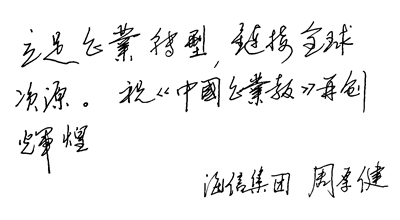 立足企業轉型，鏈接全球
资源。祝《中國企業報》再创
輝煌
海信集团 周厚健